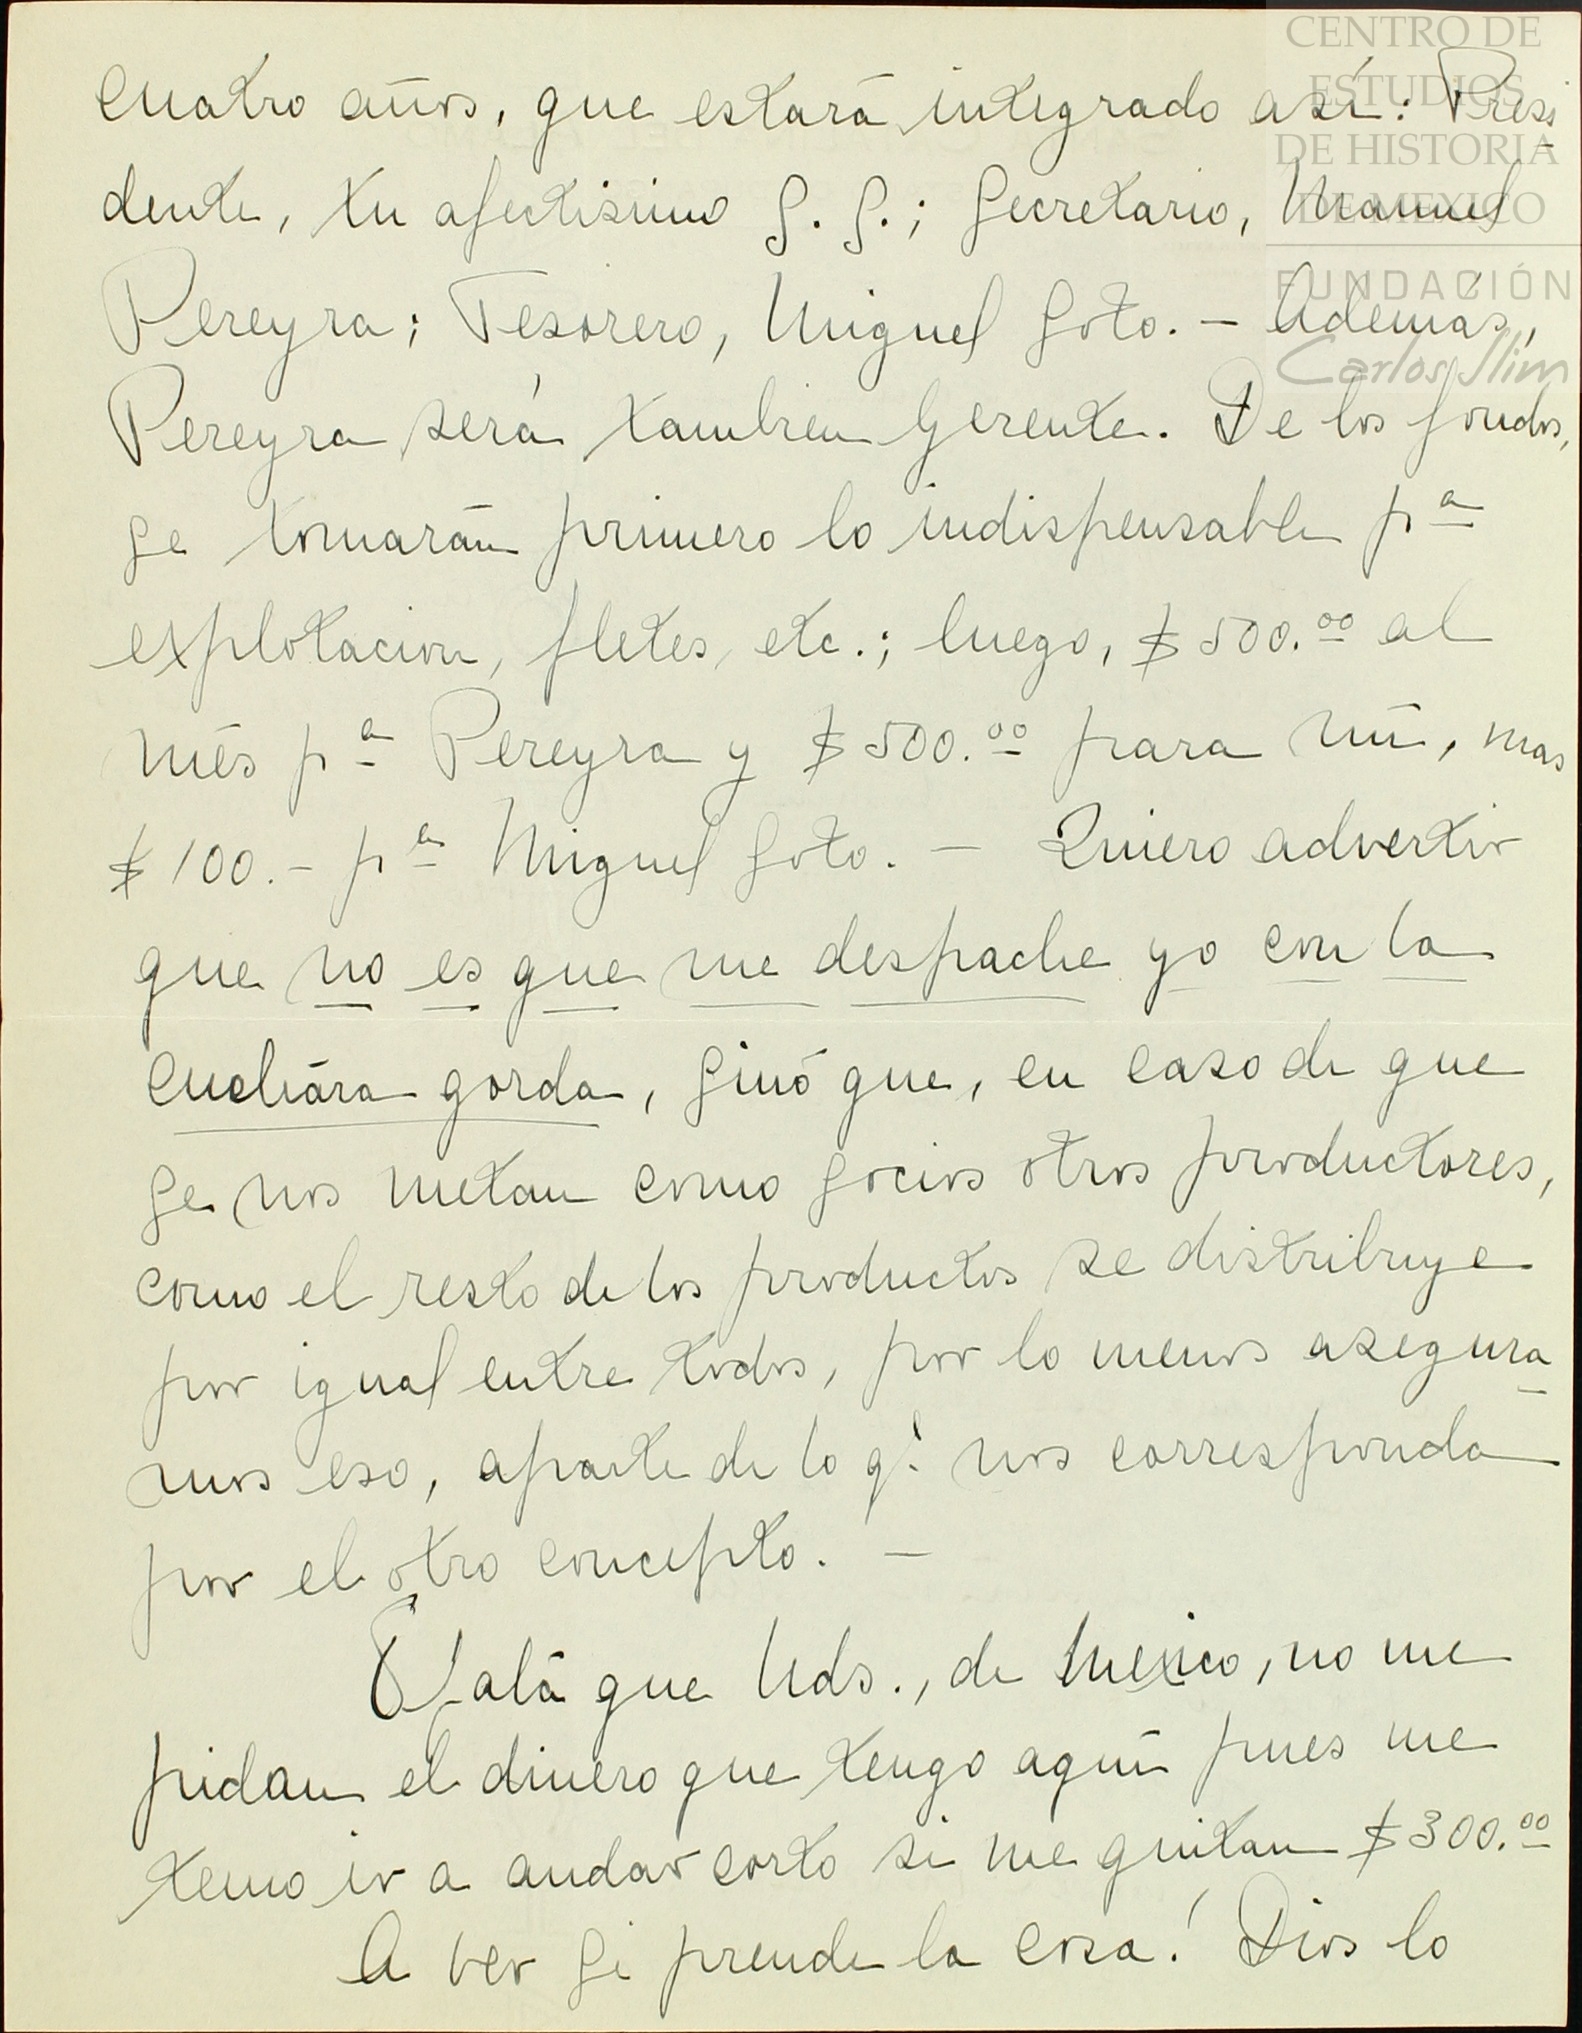 CENTRO DE
ESTUDIOS
DE HISTORIA
DE MEXICO
FUNDACIÓN
Carlos Slim
cuatro años, que estará integrado así: Presi
dente, tu afectisimo S. S.; Secretario, Manuel
Pereyra; Tesorero, Miguel Soto. — Además,
Pereyra será tambien Gerente. De los fondos,
se tomarán primero lo indispensable pª
explotacion, fletes, etc.; luego, $500.00 al
més pª Pereyra y $500.00 para mí, mas
$100.- pª Miguel Soto. — Quiero advertir
que no es que me despache yo con la
cuchára gorda, sinó que, en caso de que
se nos metan como socios otros productores,
como el resto de los productos se distribuye
por igual entre todos, por lo menos asegura
mos eso, aparte de lo q' nos corresponda
por el otro concepto. —
Ojalá que Uds., de Mexico, no me
pidan el dinero que tengo aquí pues me
temo ir a andar corto si me quitan $300.00
A ver si prende la cosa! Dios lo